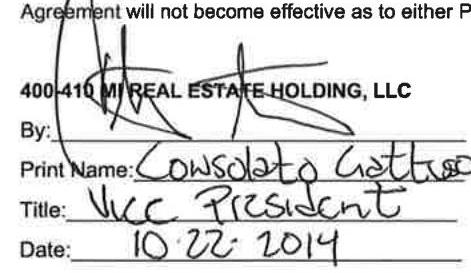 Agreement will not become effective as to either P
400-410 MI REAL ESTATE HOLDING, LLC
By:
Print Name: Consolato Gattuso
Title: Vice President
Date: 10-22-2014